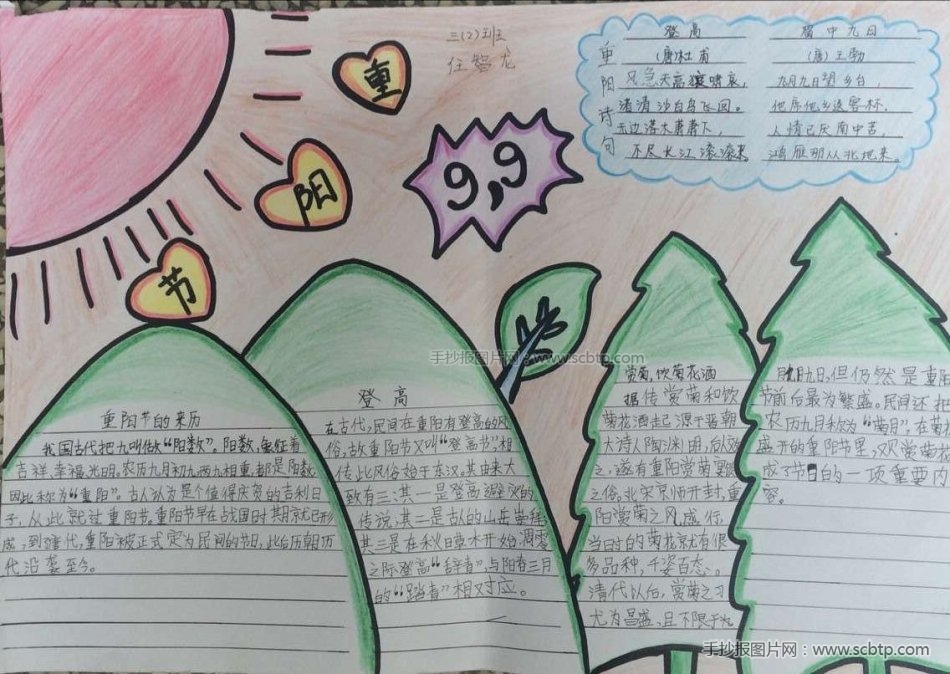 三(2)班
任智龙
重
阳
节
9,9
重阳诗句
登高
(唐)杜甫
风急天高猿啸哀,
渚清沙白鸟飞回。
无边落木萧萧下,
不尽长江滚滚来
蜀中九日
(唐)王勃
九月九日望乡台,
他席他乡送客杯,
人情已厌南中苦,
鸿雁那从北地来。
重阳节的来历
我国古代把九叫做“阳数”。阳数,象征着
吉祥、幸福、光明。农历九月初九两九相重,都是阳数
因此称为“重阳”。古人认为是个值得庆贺的吉利日
子,从此就过重阳节。重阳节早在战国时期就已形
成,到唐代,重阳被正式定为民间的节日,此后历朝历
代沿袭至今。
登高
在古代,民间在重阳有登高的风
俗,故重阳节又叫“登高节”。相
传此风俗始于东汉,其由来大
致有三:其一是登高避灾的
传说,其二是古人的山岳崇拜
其三是在秋日草木开始凋零
之际登高“辞青”,与阳春三月
的“踏青”相对应。
赏菊,饮菊花酒
据传赏菊和饮
菊花酒起源于晋朝
大诗人陶渊明,后效
之,遂有重阳赏菊
之俗。北宋京师开封,重
阳赏菊之风盛行,
当时的菊花就有很
多品种,千姿百态。
清代以后,赏菊之习
尤为昌盛,且不限于九
月九日,但仍然是重阳
节前后最为繁盛。民间还把
农历九月称为“菊月”,在菊花
盛开的重阳节里,观赏菊花
成了节日的一项重要内
容。
手抄报图片网 www.scbtp.com
手抄报图片网:www.scbtp.com